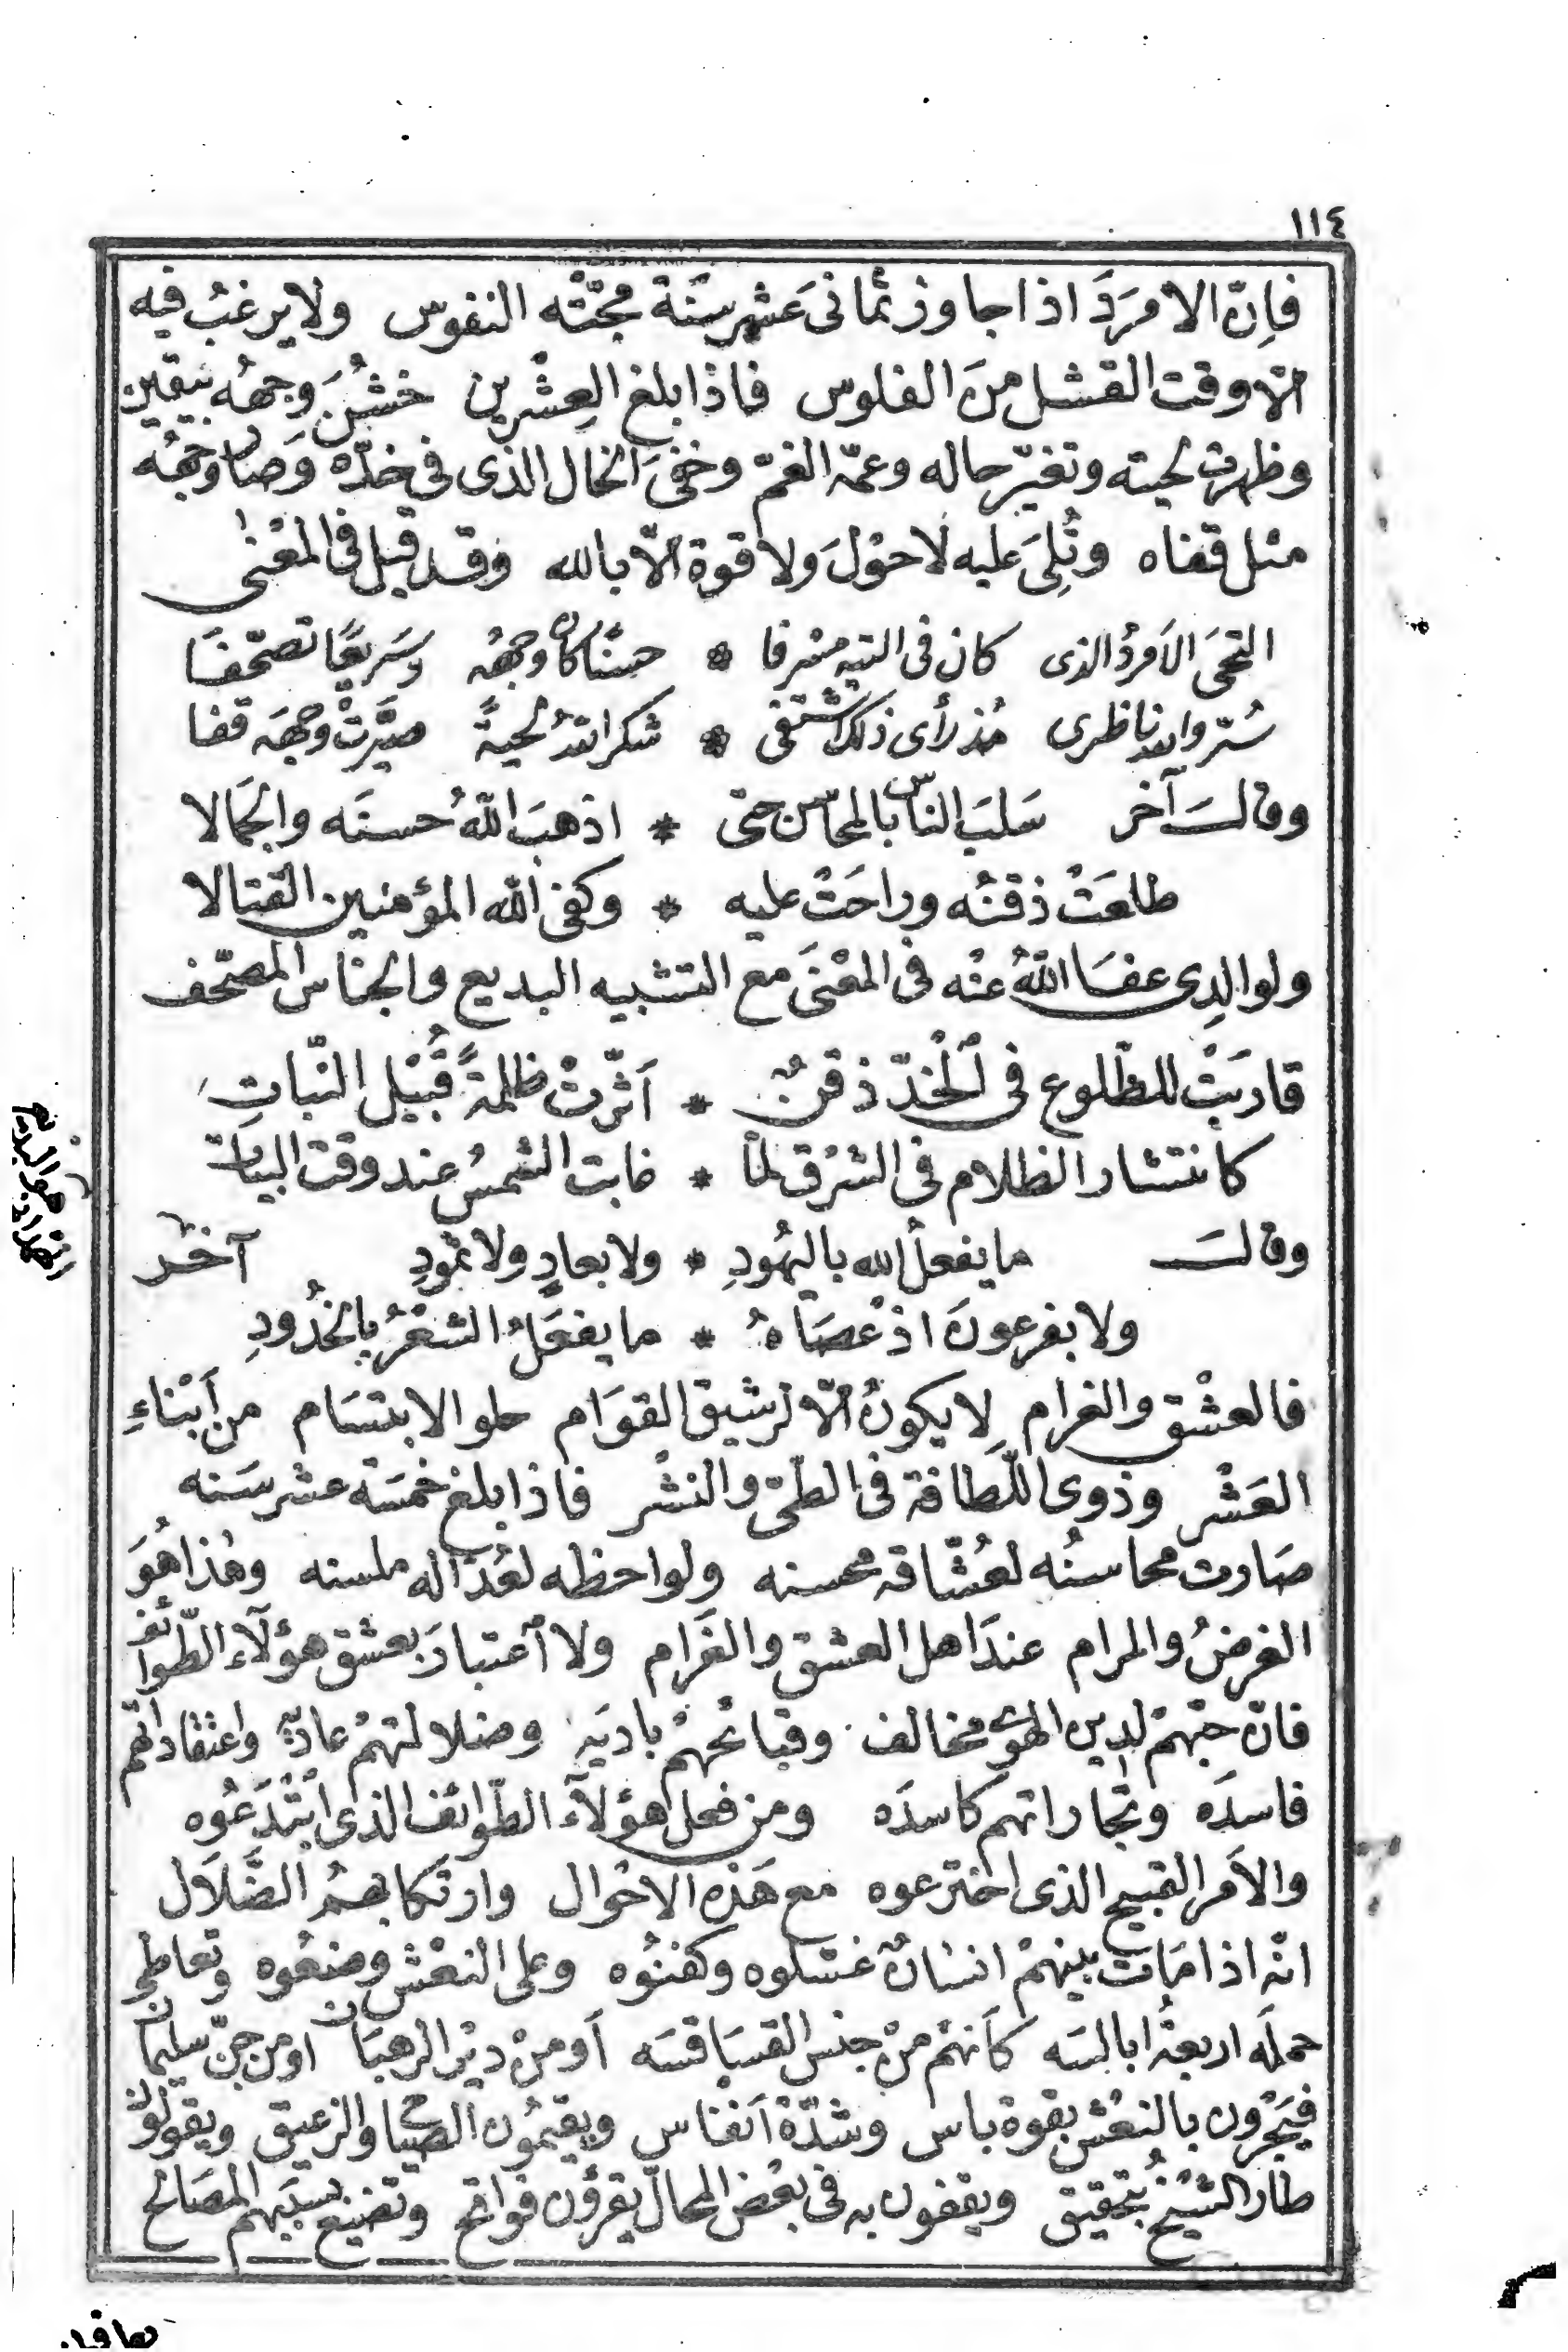 ١١٤
فاِنّ الامرَدَ اذا جاوز ثمانىَ عشر سَنَة مجّتْه النفوس ولا يرغبُ فيه
الّا وقت القشل منَ الفلوس فاذا بلغ العِشْرين خشُنَ وجهُه بيقين
وظهرت لحيته وتغيّر حاله وعمّه الغمّ وخفىَ الخال الذى فى خدّه وَصَار وجهُه
مثل قفاه وتُلِىَ عليه لا حوْلَ ولا قوة الّا بالله وَقد قيل فى المعْنى
التحَى الاَمردُ الذى كان فى التيه مسرفا * حسَنًا كان وجهُه وسَريعًا تصحّفَا
سُرّ والله ناظرى مُذ رأى ذلك اشتفى * شكر الله لحيةً صيَّرتْ وجْهَه قفا
وقالَ آخر سَلبَ الناس بالمحاسن حتى * اذهبَ اللهُ حسنَه والجَمالا
طلعَتْ ذقنُه وراحَتْ عليه * وكفى الله المؤمنين القتالا
ولوالدِى عفَا اللهُ عنْه فى المعْنَى مع التشبيه البديع والجناس المصحّف
قاربَتْ للطّلوع فى الْخدّ ذقنٌ * اَثّرتْ ظلمةً قُبَيْل النّباتِ
كانتشار الظلام فى الشرْق لمّا * غابت الشمسُ عند وقت البيات
وقالَ آخر ما يفعلُ الله باليهُودِ * ولا بعادٍ ولا ثمودِ
ولا بفرعونَ اذْ عصَاهُ * ما يفعَلُ الشعْرُ بالخُدُودِ
فالعشْق والغرام لا يكونُ الّا لرشيق القوَام حلو الابتسَام من اَبْناءِ
العَشْر وذوى اللّطَافة فى الطّىّ والنشْر فاذا بلغ خمسَة عشر سَنه
صَارت محاسنُه لعُشّاقه محسنه ولواحظه لعُذّاله ملسنه وهٰذا هُوَ
الغرضُ والمرام عندَ اهل العشق والغَرام ولا اعتبارَ بعشق هؤلآء الطّوائف
فانّ حبّهمْ لدين الهوى مخالف وقبائحهمْ باديَه وضلالتهمْ عاديّه واعتقاداتهم
فاسدَه وتجاراتهم كاسدَه ومن فعل هؤلآء الطّوائف الذى ابْتدَعُوه
والاَمر القبيح الذى اخترعوه مع هَذه الاحْوال وارتكابهمُ الضَّلاَل
انّه اذا مَات بينهمْ انسَانٌ غسّلوه وكفنُوه وعلى النعْش وضعُوه وتعاطى
حملَه اربعةُ ابالسَه كاَنهمْ منْ جنس القسَاقسَه اَو منْ ديْر الرهبَان او من جنّ سليمان
فيَجْرون بالنعْش بقوة باس وشدّة اَنفاس ويقيمُون الصيَاح والزعيق ويقولونَ
طار الشيْخُ بتحقيق ويقفون به فى بعْض المحالّ يقرؤُن فواتح وتضيع بسَببهم المصَالح